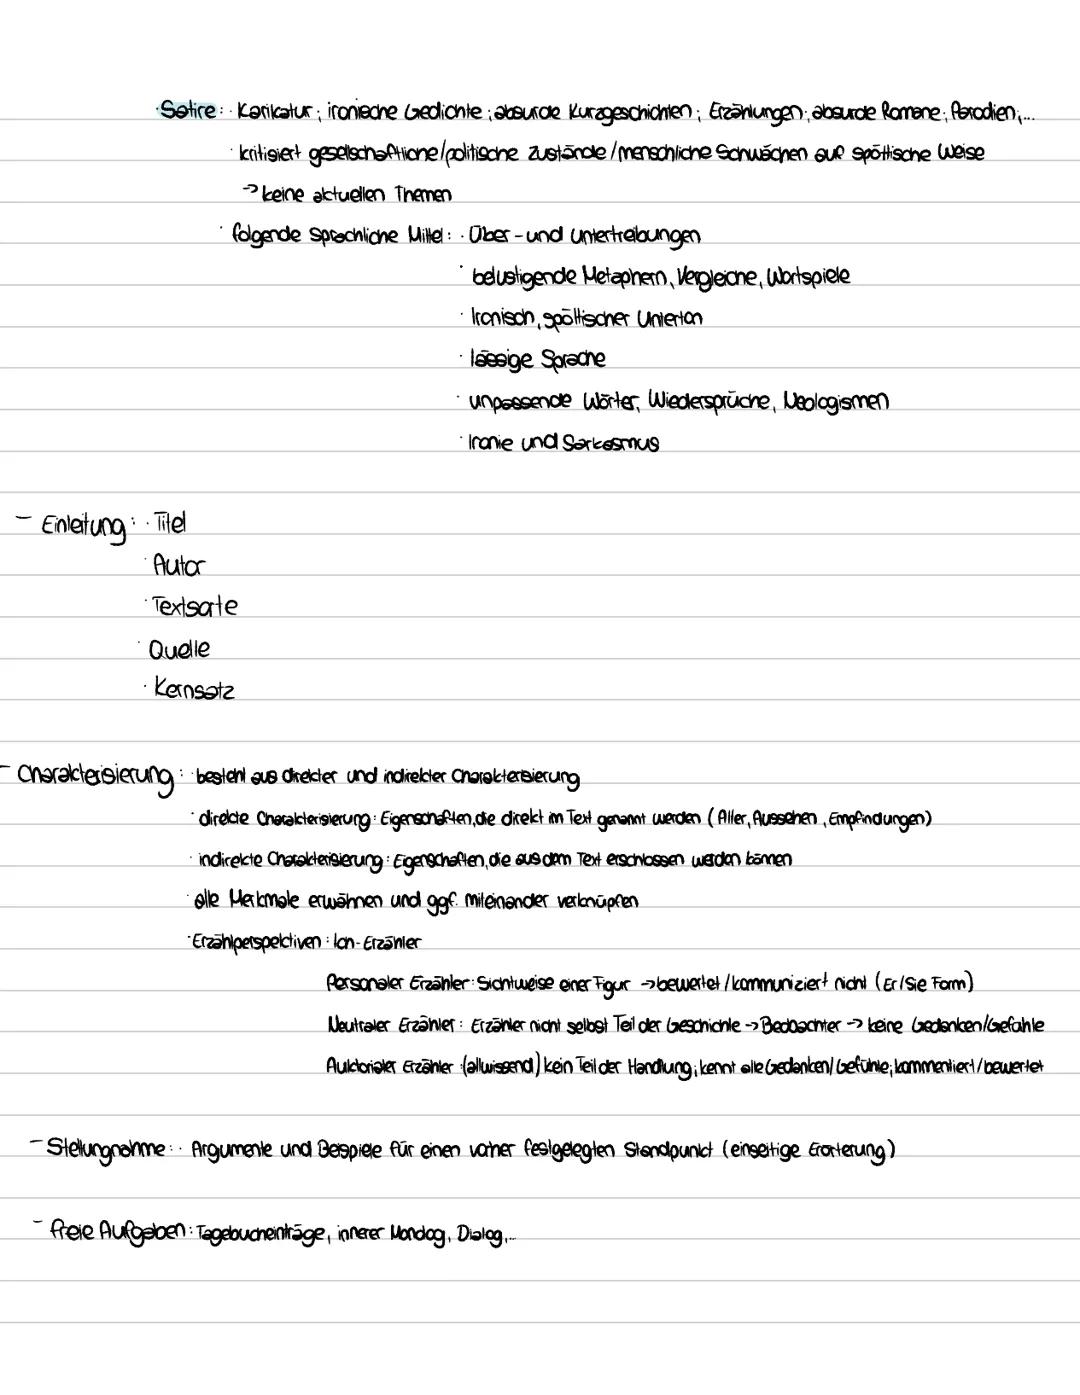 · Satire: · Karikatur; ironische Gedichte; absurde Kurzgeschichten; Erzählungen; absurde Romane; Parodien;...
· kritisiert gesellschaftliche/politische Zustände/menschliche Schwächen auf spöttische Weise
→ keine aktuellen Themen
· folgende sprachliche Mittel: · Über- und untertreibungen
· belustigende Metaphern, Vergleiche, Wortspiele
· Ironisch, spöttischer Unterton
· lässige Sprache
· unpassende Wörter, Wiedersprüche, Neologismen
· Ironie und Sarkasmus
- Einleitung: · Titel
· Autor
· Textsorte
· Quelle
· Kernsatz
- Charakterisierung: · besteht aus direkter und indirekter Charakterisierung
· direkte Charakterisierung: Eigenschaften, die direkt im Text genannt werden (Alter, Aussehen, Empfindungen)
· indirekte Charakterisierung: Eigenschaften, die aus dem Text erschlossen werden können
· alle Merkmale erwähnen und ggf. miteinander verknüpfen
· Erzählperspektiven: Ich-Erzähler
Personaler Erzähler: Sichtweise einer Figur → bewertet/kommuniziert nicht (Er/Sie Form)
Neutraler Erzähler: Erzähler nicht selbst Teil der Geschichte → Beobachter → keine Gedanken/Gefühle
Auktorialer Erzähler: (allwissend) kein Teil der Handlung; kennt alle Gedanken/Gefühle; kommentiert/bewertet
- Stellungnahme: · Argumente und Beispiele für einen vorher festgelegten Standpunkt (einseitige Erörterung)
- freie Aufgaben: Tagebucheinträge, innerer Monolog, Dialog,...